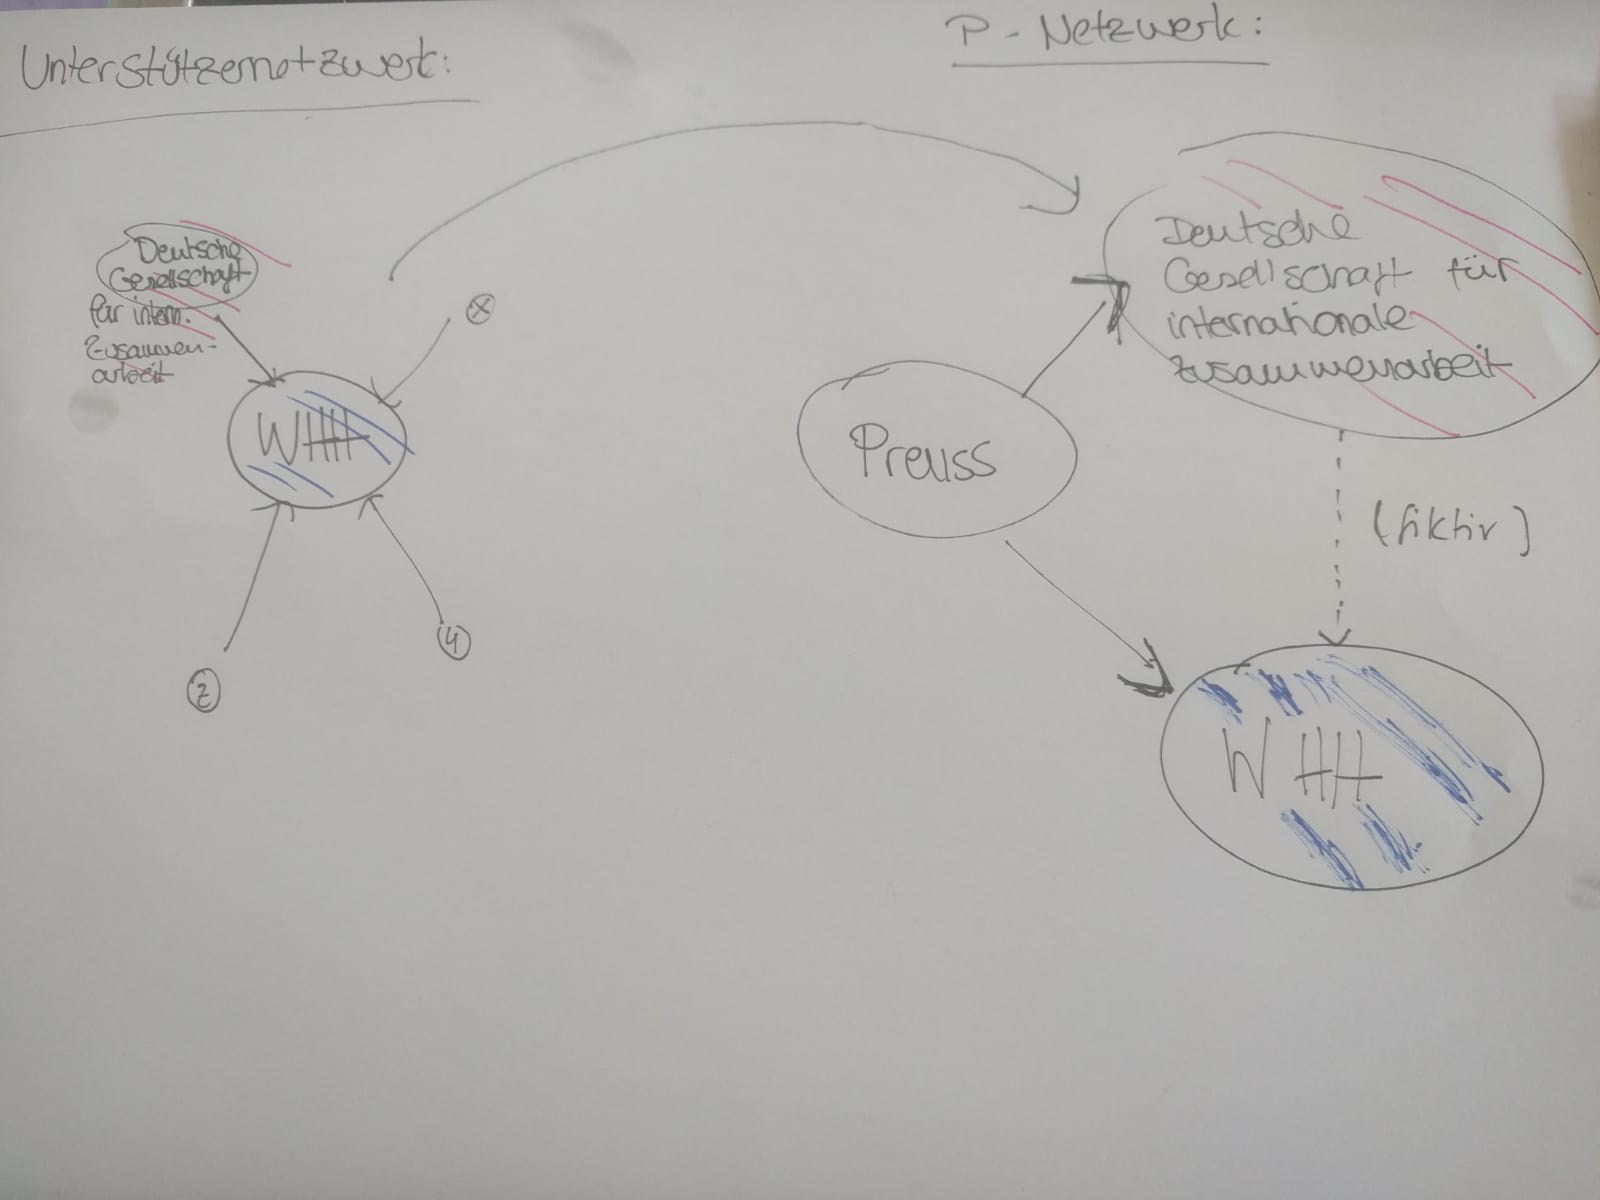 Unterstützernetzwerk:
P - Netzwerk:
Deutsche
Gesellschaft
für intern.
Zusammen-
arbeit
X
WHH
2
4
Preuss
Deutsche
Gesellschaft für
internationale
Zusammenarbeit
(fiktiv)
WHH